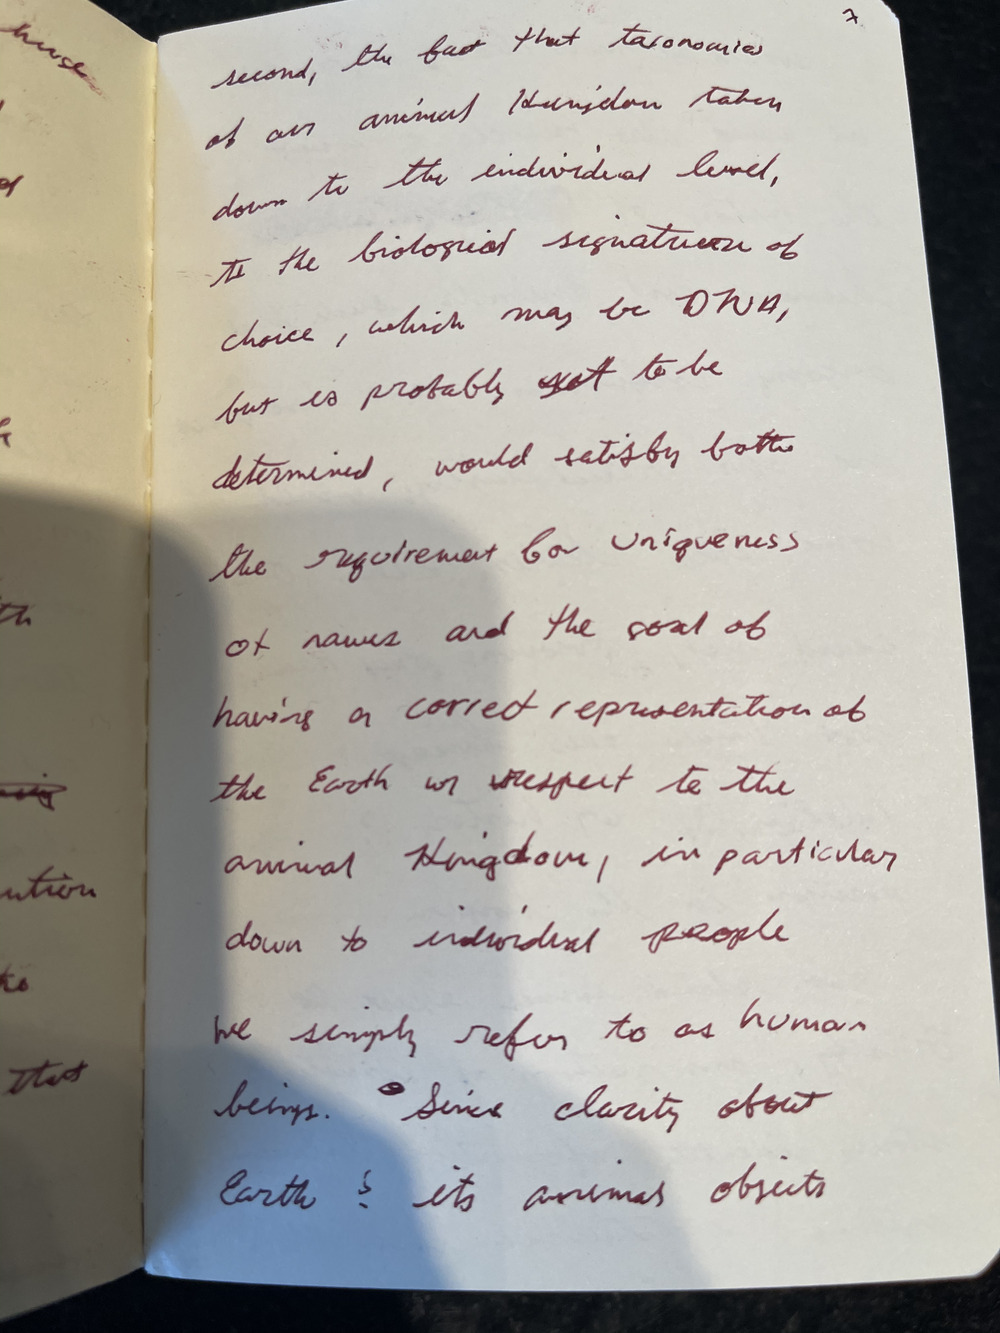 7
second, the fact that taxonomies
of an animal Kingdom taken
down to the individual level,
to the biological signature of
choice, which may be DNA,
but is probably yet to be
determined, would satisfy both
the requirement for uniqueness
of names and the goal of
having a correct representation of
the Earth w/ respect to the
animal Kingdom, in particular
down to individual people
we simply refer to as human
beings. Since clarity about
Earth & its animal objects
house
ution
that